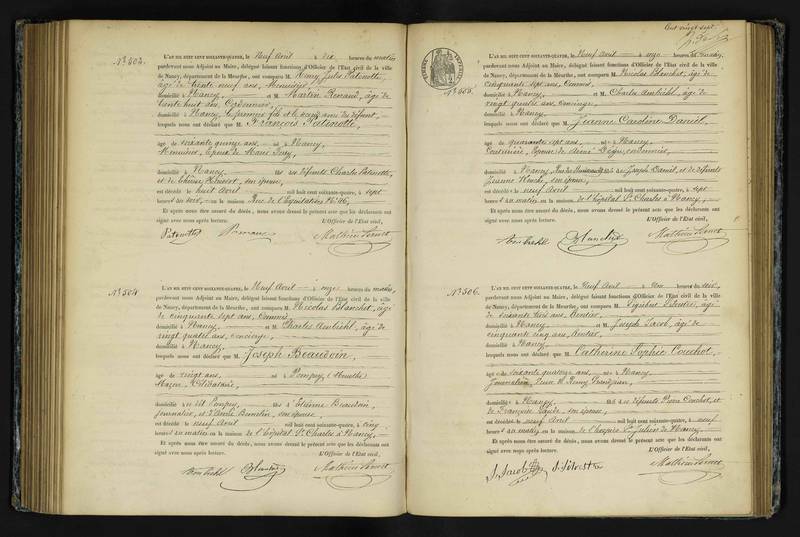 N° 503.
L'AN MIL HUIT CENT SOIXANTE-QUATRE, le Neuf Avril à dix heures du matin
pardevant nous Adjoint au Maire, délégué faisant fonctions d'Officier de l'Etat civil de la ville
de Nancy, département de la Meurthe, ont comparu M. Henry Jules Patenotte,
âgé de trente neuf ans, Menuisier,
domicilié à Nancy, et M. Martin Renaud, âgé de
trente huit ans, Cordonnier,
domicilié à Nancy,
lesquels nous ont déclaré que M. François Patenotte,
âgé de soixante quinze ans, né à Nancy
Menuisier, Epoux de Marie
domicilié à Nancy fils des défunts Charles Patenotte,
et de Thérèse son épouse,
est décédé le huit Avril mil huit cent soixante-quatre, à sept
heures du soir, en la maison Rue de l'Equitation N° 46,
Et après nous être assuré du décès, nous avons devant le présent acte que les déclarants ont
signé avec nous après lecture. L'Officier de l'Etat civil,
Patenotte
N° 504
L'AN MIL HUIT CENT SOIXANTE-QUATRE, le Neuf Avril à onze heures du matin,
pardevant nous Adjoint au Maire, délégué faisant fonctions d'Officier de l'Etat civil de la ville
de Nancy, département de la Meurthe, ont comparu M. Nicolas Blanchet, âgé
de cinquante sept ans, Commis,
domicilié à Nancy, et M. Charles âgé de
vingt quatre ans, concierge,
domicilié à Nancy,
lesquels nous ont déclaré que M. Joseph Beaudoin,
âgé de vingt ans, né à Pompey (Meurthe)
Maçon, Célibataire,
domicilié à Pompey, fils d'Etienne Beaudoin,
journalier, et d' son épouse,
est décédé le neuf Avril mil huit cent soixante-quatre, à cinq
heures du matin en la maison de l'hôpital St Charles à Nancy,
Et après nous être assuré du décès, nous avons devant le présent acte que les déclarants ont
signé avec nous après lecture. L'Officier de l'Etat civil,
Blanchet
Cent vingt sept
N° 505.
L'AN MIL HUIT CENT SOIXANTE-QUATRE, le Neuf Avril à onze heures du matin,
pardevant nous Adjoint au Maire, délégué faisant fonctions d'Officier de l'Etat civil de la ville
de Nancy, département de la Meurthe, ont comparu M. Nicolas Blanchet, âgé de
cinquante sept ans, Commis,
domicilié à Nancy et M. Charles âgé de
vingt quatre ans, concierge,
domicilié à Nancy,
lesquels nous ont déclaré que M. Jeanne Caroline Daniel,
âgé de quarante sept ans, née à Nancy
Couturière, Epouse de cordonnier,
domicilié à Nancy, fille de Joseph Daniel, et de défunte
Jeanne son épouse,
est décédée le neuf Avril mil huit cent soixante-quatre, à sept
heures du matin, en la maison de l'hôpital St Charles à Nancy,
Et après nous être assuré du décès, nous avons devant le présent acte que les déclarants ont
signé avec nous après lecture. L'Officier de l'Etat civil,
Blanchet
N° 506.
L'AN MIL HUIT CENT SOIXANTE-QUATRE, le Neuf Avril à heures du
pardevant nous Adjoint au Maire, délégué faisant fonctions d'Officier de l'Etat civil de la ville
de Nancy, département de la Meurthe, ont comparu M. Silvestre, âgé
de soixante trois ans, Rentier,
domicilié à Nancy et M. Joseph Jacob, âgé de
cinquante cinq ans, Rentier,
domicilié à Nancy
lesquels nous ont déclaré que M. Catherine Sophie Couchot,
âgé de soixante quatorze ans, née à Nancy,
Journalière, Veuve de Remy
domicilié à Nancy, fille des défunts Pierre Couchot, et
de Françoise son épouse,
est décédée le neuf Avril mil huit cent soixante-quatre, à neuf
heures du matin, en la maison de l'hospice St Julien de Nancy,
Et après nous être assuré du décès, nous avons devant le présent acte que les déclarants ont
signé avec nous après lecture. L'Officier de l'Etat civil,
J. Jacob Silvestre